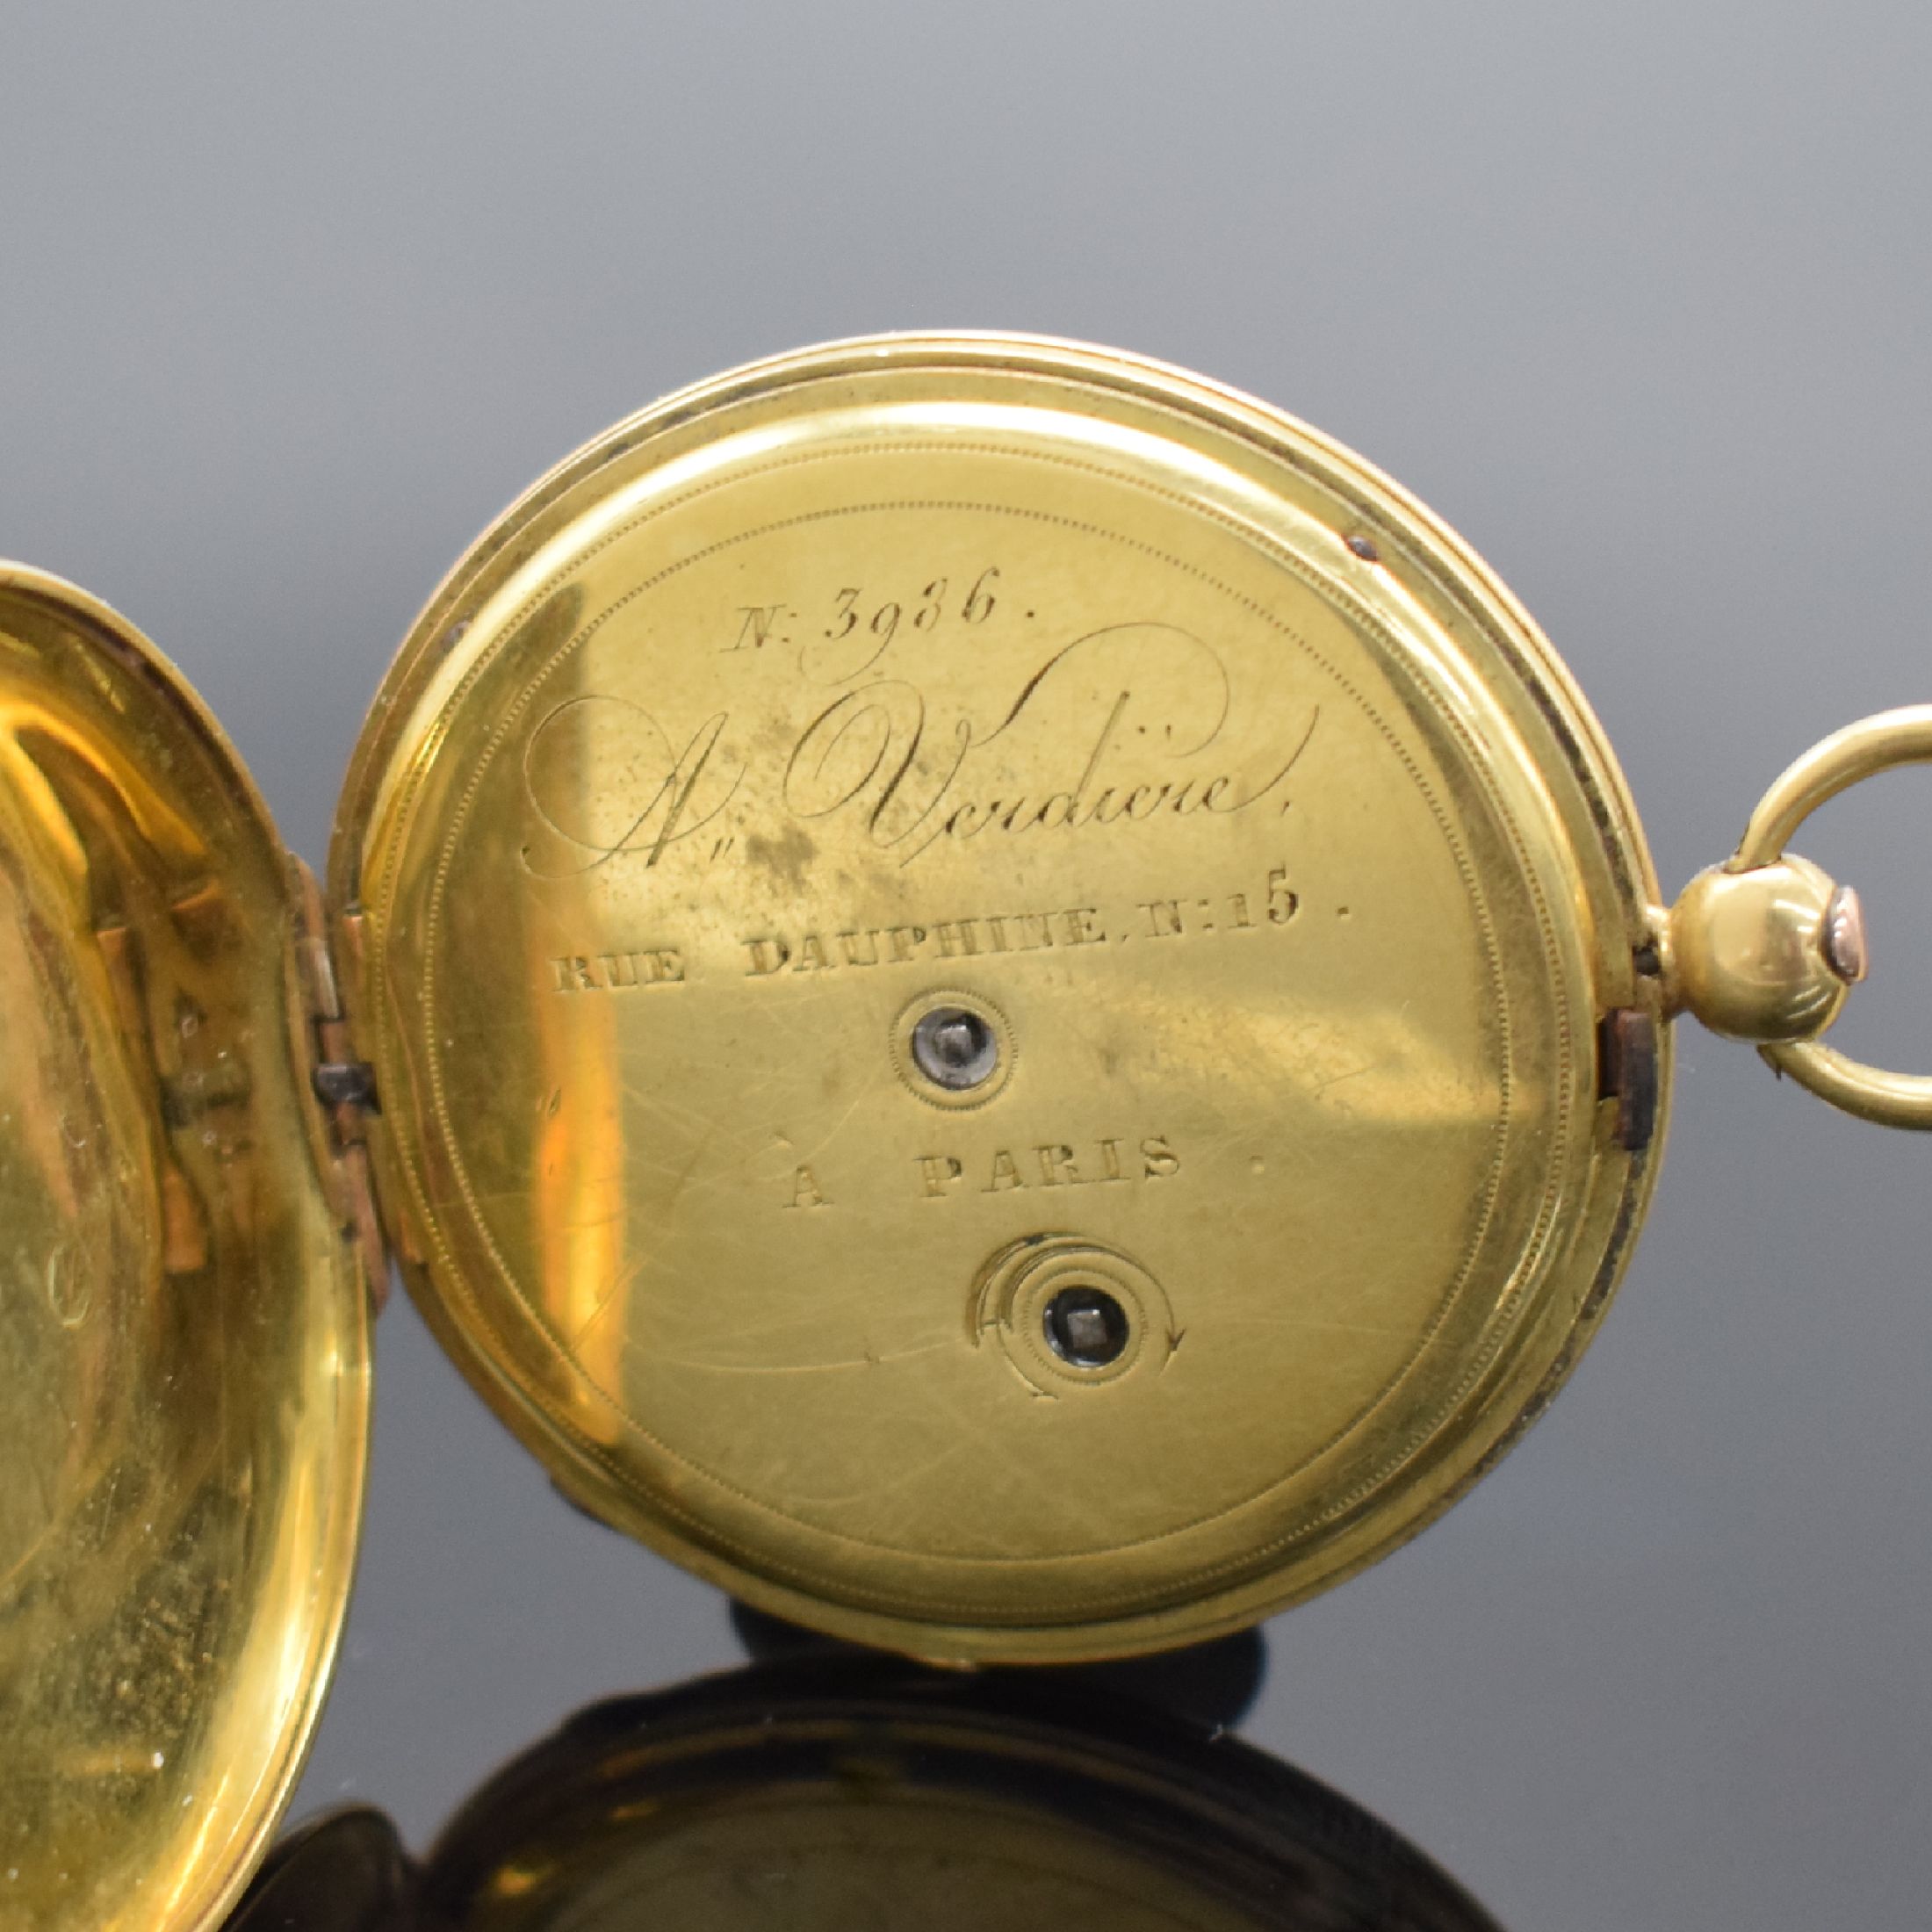 N: 3986.
A„ Verdiere,
RUE DAUPHINE, N: 15.
À PARIS.